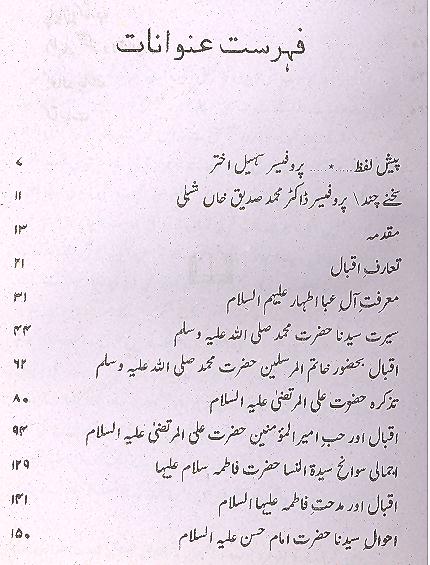 فہرست عنوانات
پیش لفظ.....٭..... پروفیسر سہیل اختر ۷
سخنے چند \ پروفیسر ڈاکٹر محمد صدیق خاں شبلی ۱۱
مقدمہ ۱۳
تعارفِ اقبال ۲۱
معرفتِ آلِ عبا اطہار علیہم السلام ۳۱
سیرت سیدنا حضرت محمد صلی اللہ علیہ وسلم ۴۴
اقبال بحضور خاتم المرسلین حضرت محمد صلی اللہ علیہ وسلم ۶۲
تذکرہ حضرت علی المرتضیٰ علیہ السلام ۸۰
اقبال اور حبِ امیر المؤمنین حضرت علی المرتضیٰ علیہ السلام ۹۴
اجمالی سوانح سیدۃ النسا حضرت فاطمہ سلام علیہا ۱۲۹
اقبال اور مدحتِ فاطمہ علیہا السلام ۱۴۱
احوالِ سیدنا حضرت امام حسن علیہ السلام ۱۵۰